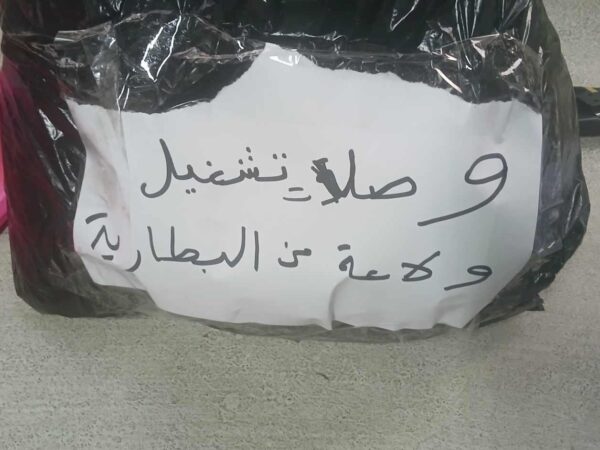 وصلات تشغيل
ولاعة من البطارية